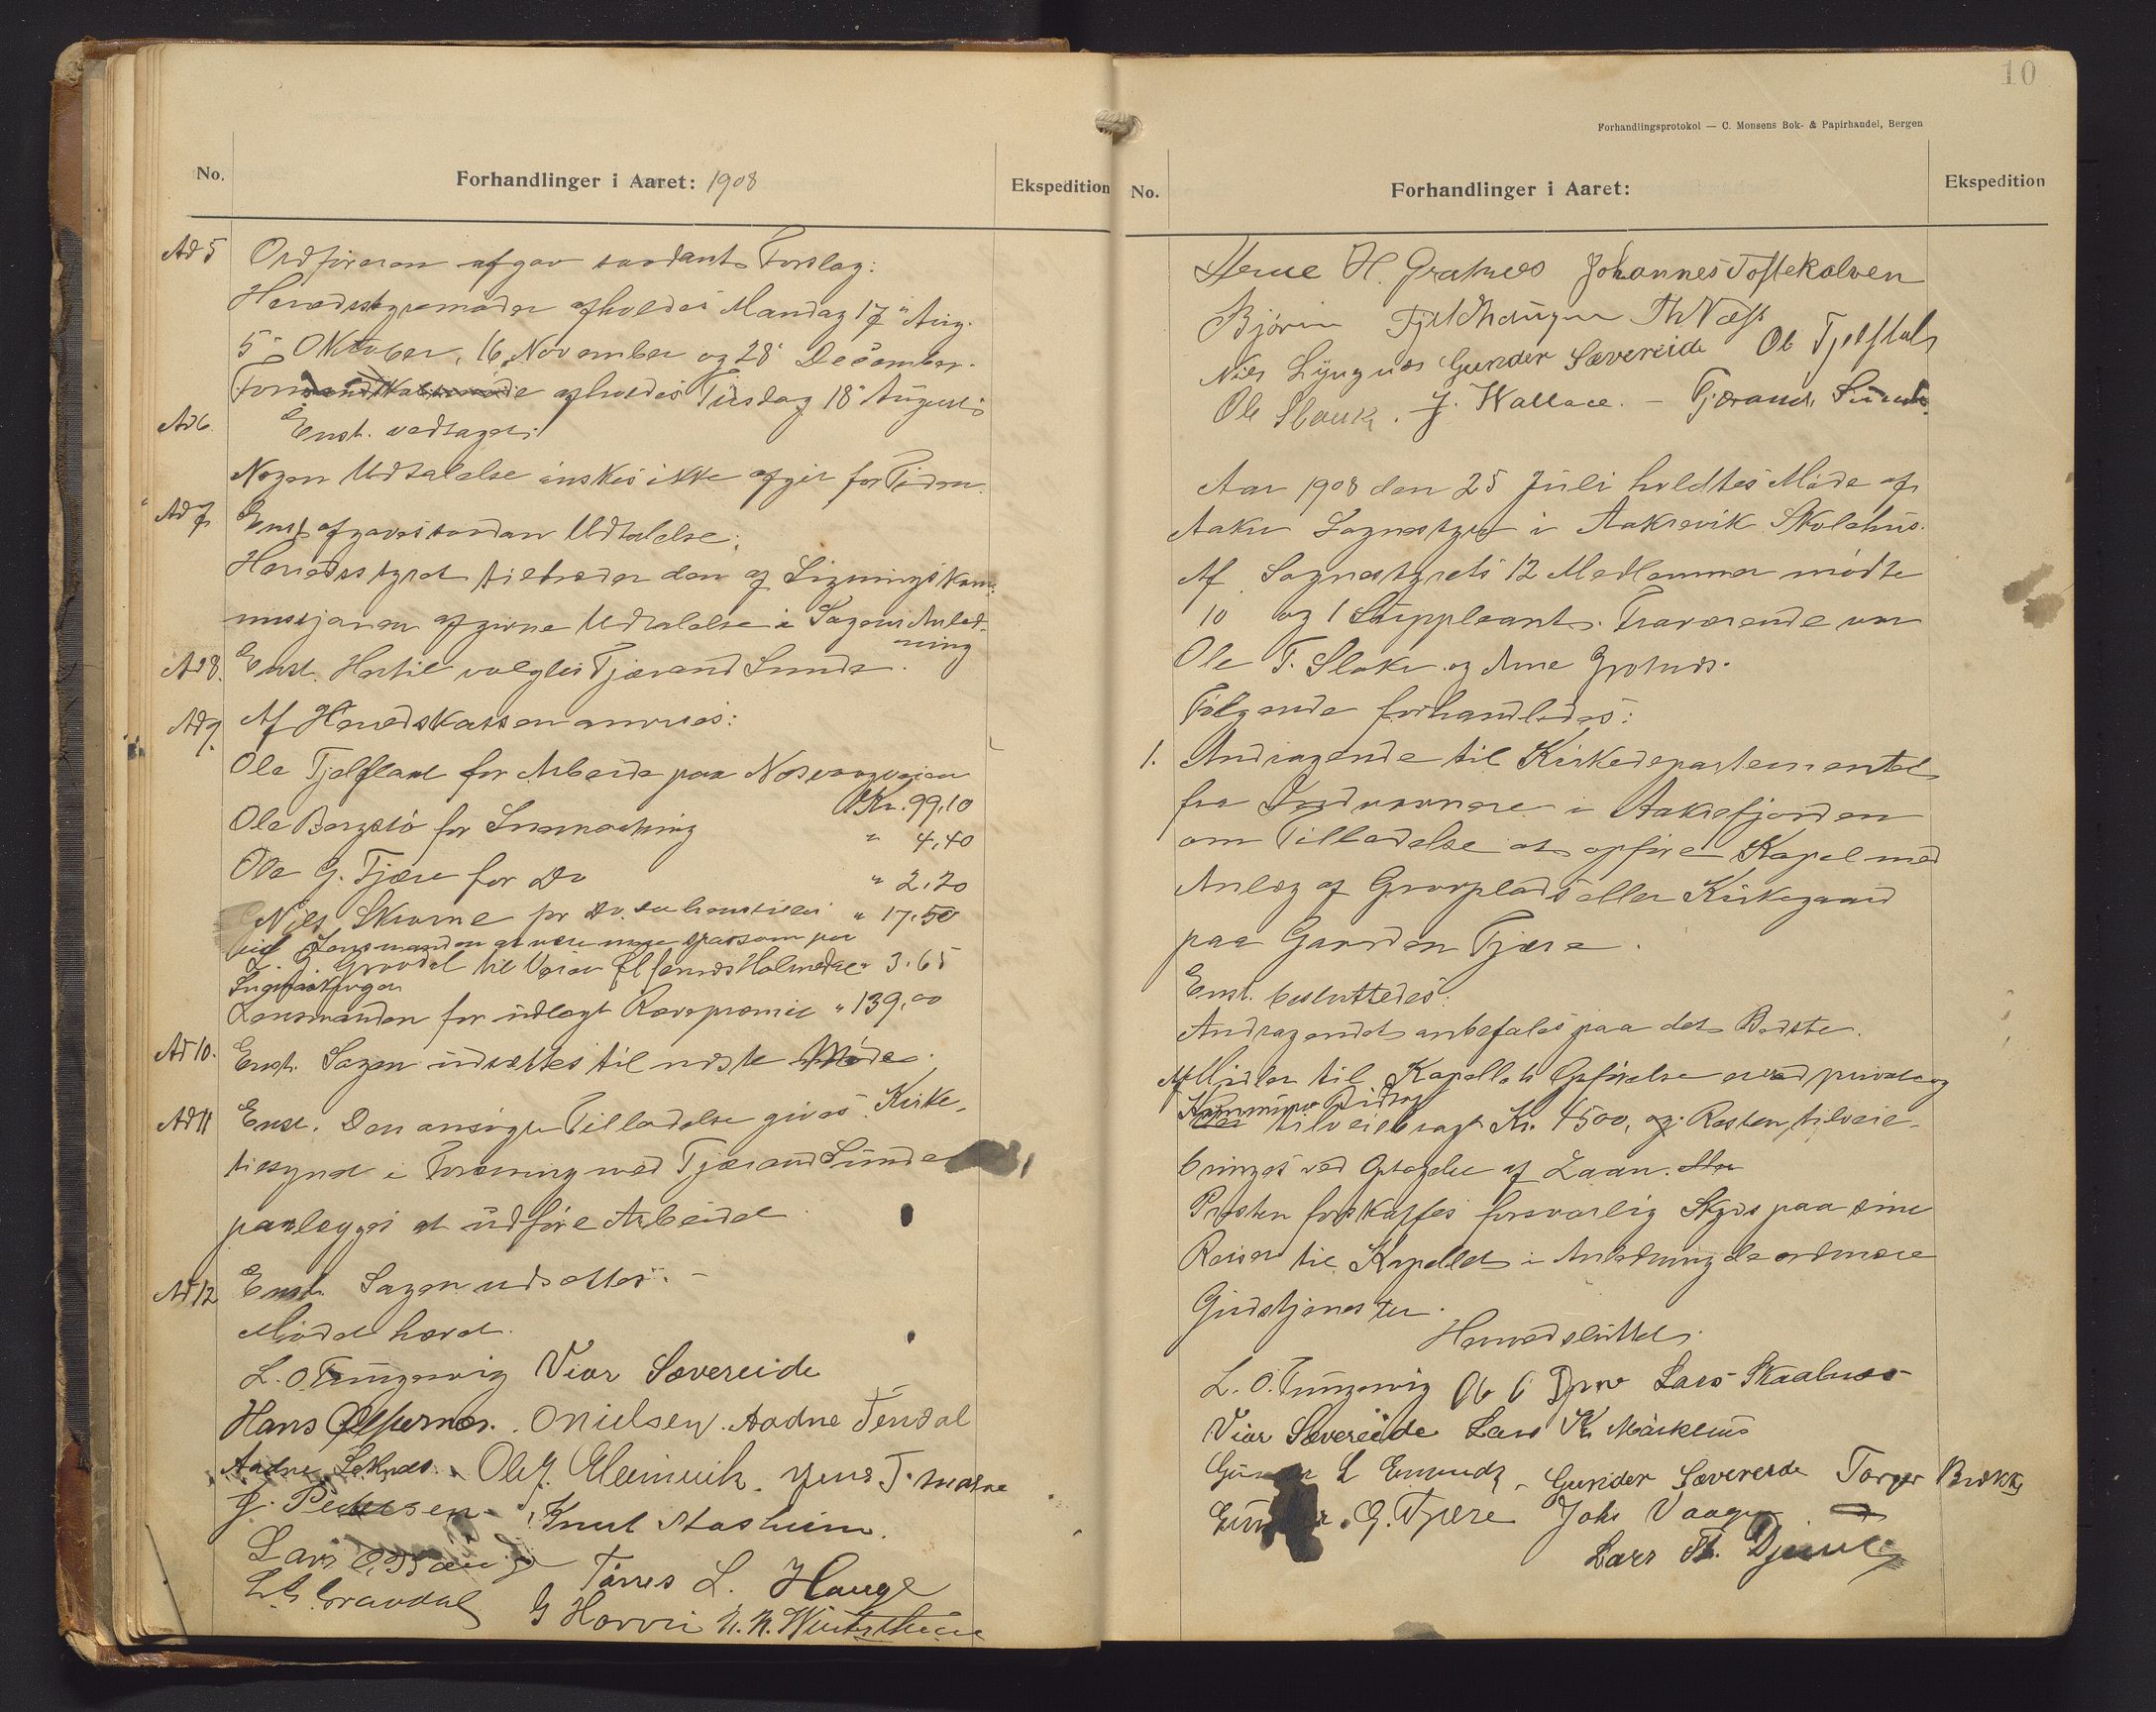 No.
Forhandlinger i Aaret: 1908
Ekspedition
Ad 5 Ordføreren afgav saadant Forslag:
Herredsstyremøder afholdes Mandag 17 Aug.
5 Oktober, 16 November og 28 December.
Formandskabsmøde afholdes Tirsdag 18 August
Enst. vedtaget
Ad 6 Nogen Udtalelse ønskes ikke afgit for Tiden.
Ad 7 Enst afgaves saadan Udtalelse:
Herredsstyret tiltræder den af Ligningskom-
missjonen afgivne Udtalelse i Sagens Anled-
ning
Ad 8. Enst. Hertil valgtes Tjærand Sunde
Ad 9. Af Herredskassen anvises:
Ole Tjelflaat for Arbeide paa Næsvaagveien
Kr. 99,10
Ole Bergstø for Snemaaking " 4,40
Ole G. Fjære for Do " 2,20
Nils Skarne for Do. " 17,50
Lensmanden at være mere sparsom paa
Snemaakingen
Gravdal til Veien Holmedal " 3.65
Lensmanden for udlagt Rovpræmie " 139,00
Ad 10. Enst. Sagen udsættes til næste Møde.
Ad 11 Enst. Den ansøgte Tilladelse gives. Kirke-
tilsynet i Forening med Tjærand Sunde
paalægges at udføre Arbeidet.
Ad 12 Enst. Sagen udsættes. –
Mødet hævet.
L. O. Tungesvig Viar Sævereide
Hans Ølfernes. O Nielsen. Aadne Fendal
Aadne Leknes. Ole J. Eleinuik. Jens T.
J. Pedersen. Knut Aasheim.
Lars
Tørres L. Hauge
L. G. Gravdal G Horvei
10
Forhandlingsprotokol — C. Monsens Bok- & Papirhandel, Bergen
No.
Forhandlinger i Aaret:
Ekspedition
Arne H. Grøtnæs Johannes Toftekalven
Bjørn Fjeldhaugen Th Næss
Nils Lyngnæs Gunder Sævereide Ole Tjelflat
Ole Slauk. J. Wallace. – Tjærand Sunde.
Aar 1908 den 25 Juli holdtes Møde af
Aakre Sognestyre i Aakrevik Skolehus.
Af Sognestyrets 12 Medlemmer mødte
10 og 1 Suppleant. Fraværende var
Ole T. Slake og Arne Grøtnæs.
Følgende forhandledes:
1. Andragende til Kirkedepartementet
fra Indvaanere i Aakrefjorden
om Tilladelse at opføre Kapel med
Anlæg af Gravplads eller Kirkegaard
paa Gaarden Fjære.
Enst. besluttedes:
Andragendet anbefales paa det Bedste.
Af Midler til Kapellets Opførelse er ved private og
Kommune Bidrag
tilveiebragt Kr. 4500, og Resten tilveie-
bringes ved Optagelse af Laan.
Presten forskaffes forsvarlig Skyds paa sine
Reiser til Kapellet i Anledning de ordinære
Gudstjenester.
Hermed sluttet.
L. O. Tungesvig Lars Skaalnes
Viar Sævereide Lars K. Mærkhus
L Emunds – Gunder Sævereide Torger Brekke
G. Fjære Johs Vaage
Lars Th. Djuve